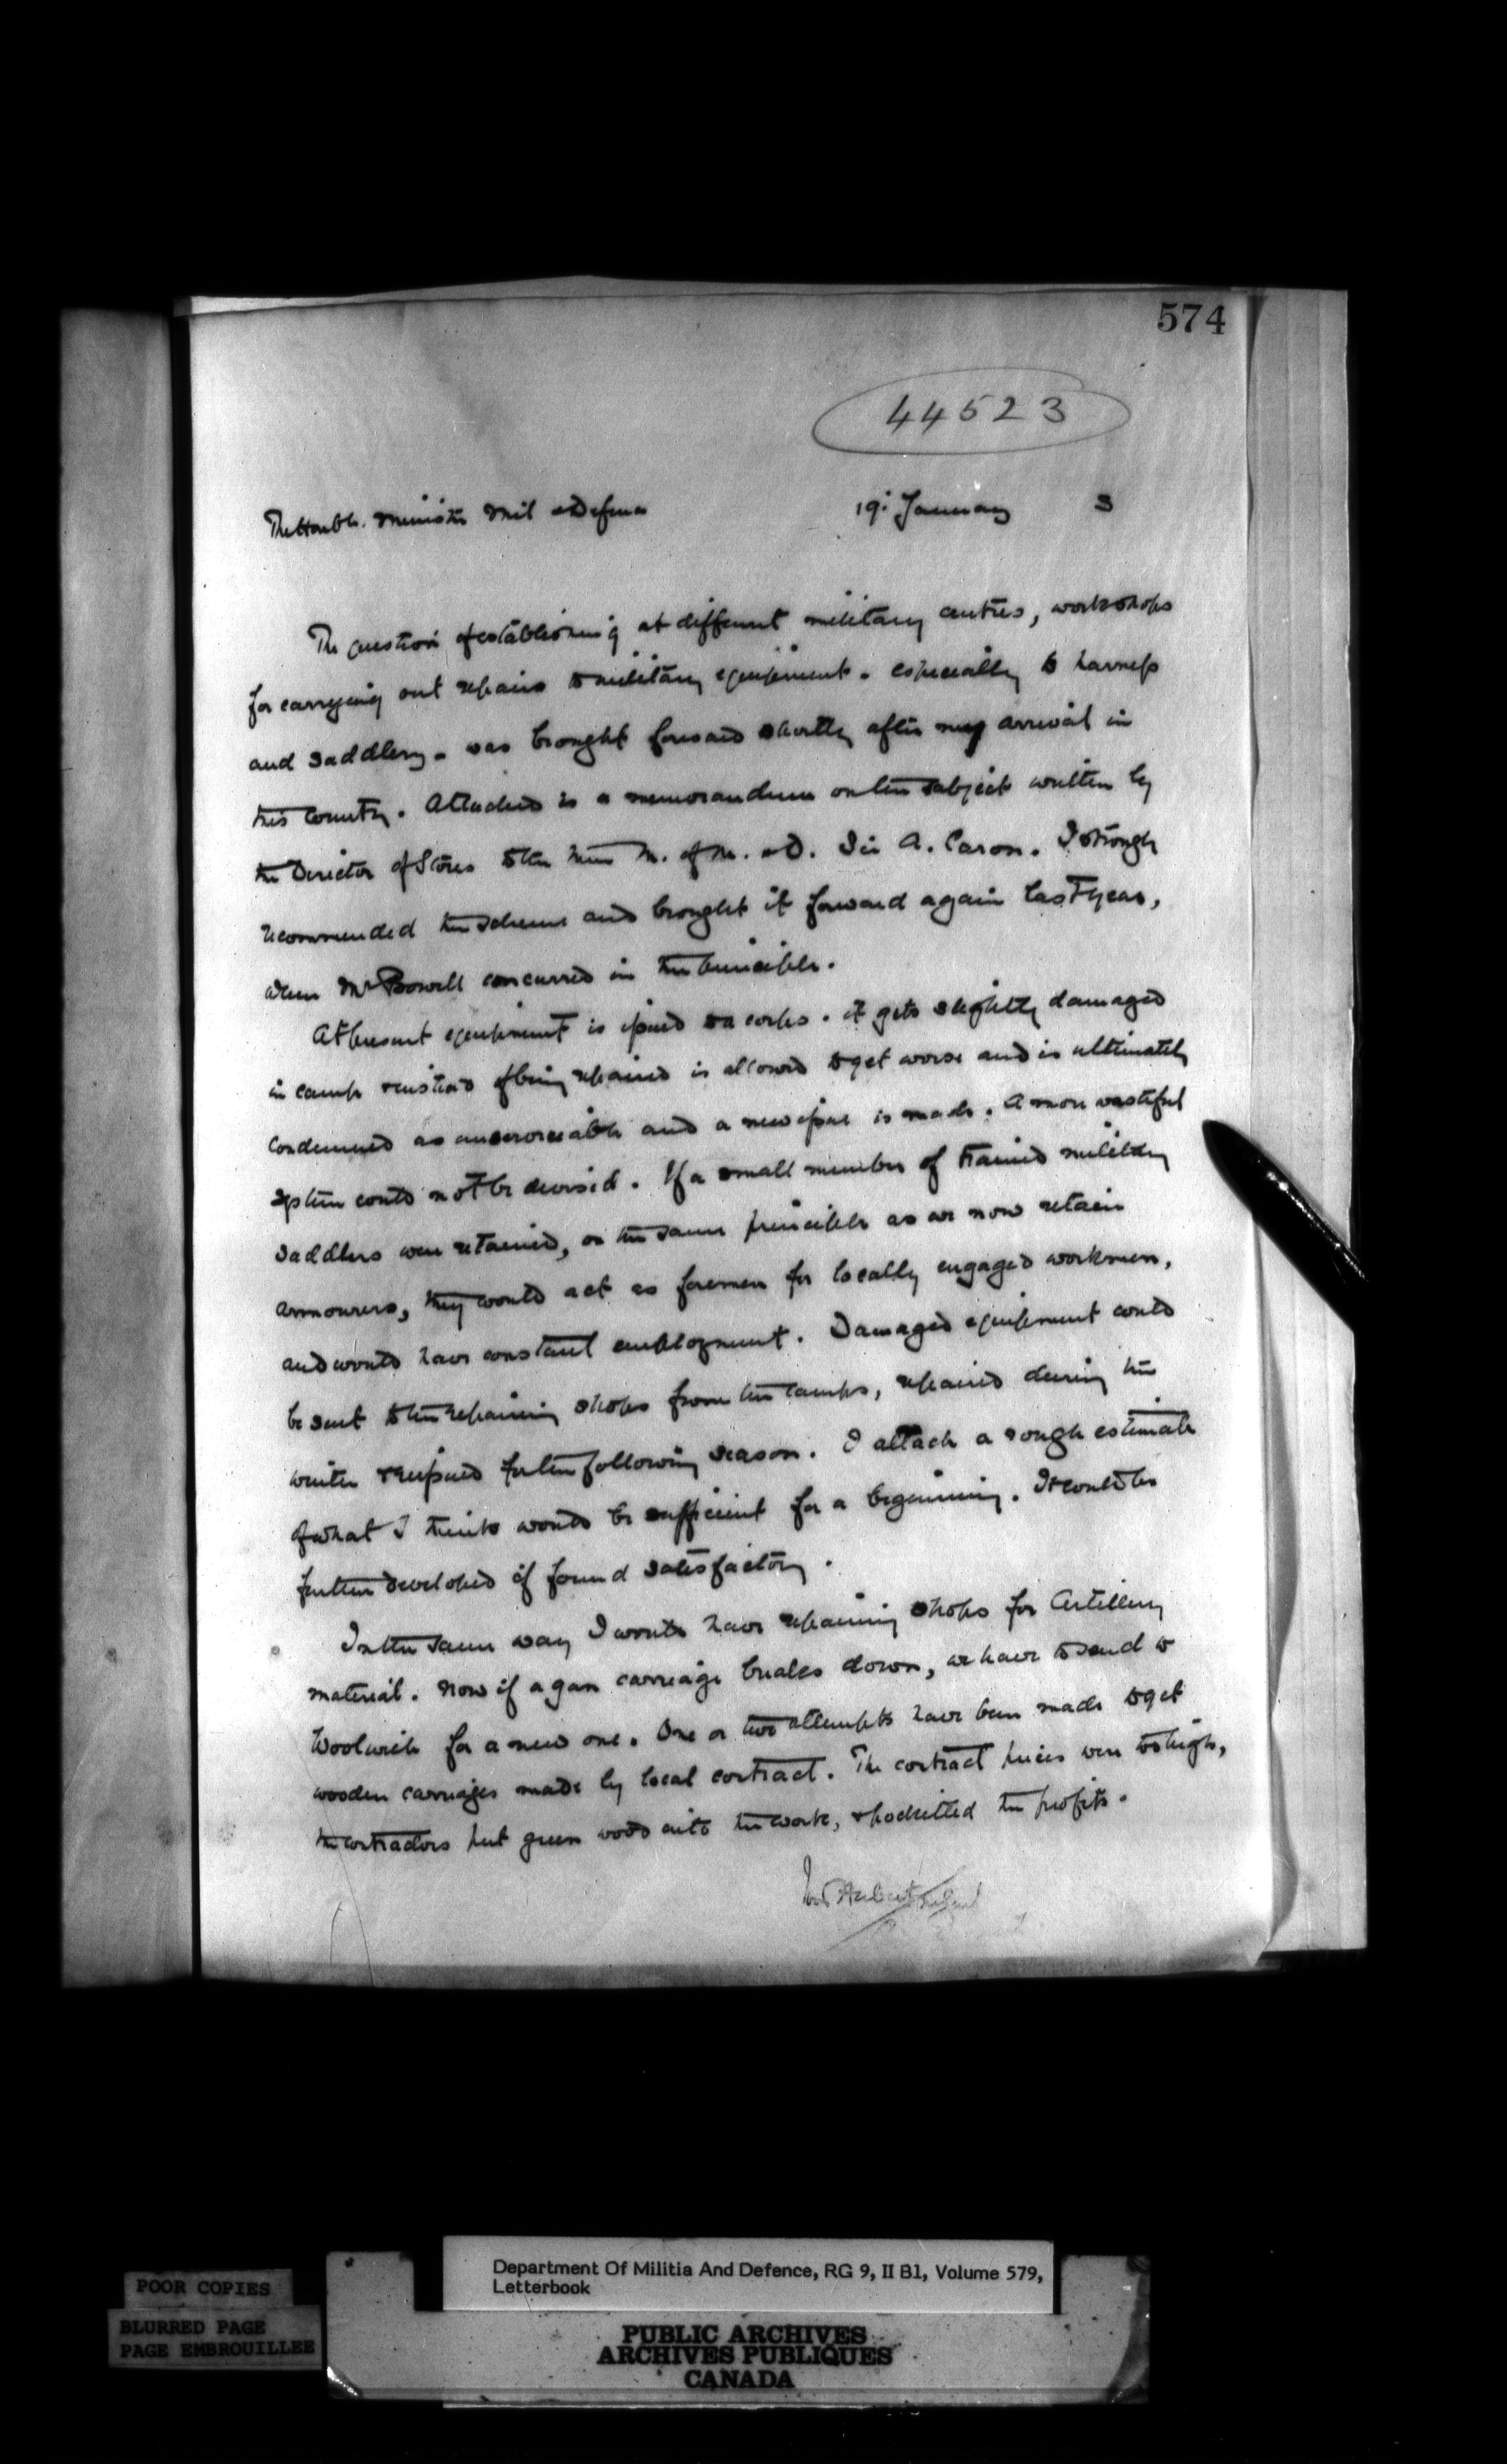 574
44523
The Honble. Minister Mil & Defence 19. January 3
The question of establishing at different military centres, workshops
for carrying out repairs to military equipment. especially to harness
and saddlery. was brought forward shortly after my arrival in
this country. Attached is a memorandum on the subject written by
the Director of Stores to the then M. of M. & D. Sir A. Caron. I strongly
recommended the scheme and brought it forward again last year,
when Mr Bowell concurred in the principle.
At present equipment is issued to a corps. it gets slightly damaged
in camp & instead of being repaired is allowed to get worse and is ultimately
condemned as unserviceable and a new issue is made. A more wasteful
system could not be devised. If a small number of trained military
saddlers were retained, on the same principle as we now retain
armourers, they would act as foremen for locally engaged workmen,
and would have constant employment. Damaged equipment could
be sent to the repairing shops from the camps, repaired during the
winter & reissued for the following season. I attach a rough estimate
of what I think would be sufficient for a beginning. It could be
further developed if found satisfactory.
In the same way I would have repairing shops for Artillery
material. Now if a gun carriage breaks down, we have to send to
Woolwich for a new one. One or two attempts have been made to get
wooden carriages made by local contract. The contract prices were too high,
the contractors put green wood into the work, & pocketted the profits.
Ivor Herbert
Department Of Militia And Defence, RG 9, II B1, Volume 579,
Letterbook
POOR COPIES
BLURRED PAGE
PAGE EMBROUILLEE
PUBLIC ARCHIVES
ARCHIVES PUBLIQUES
CANADA